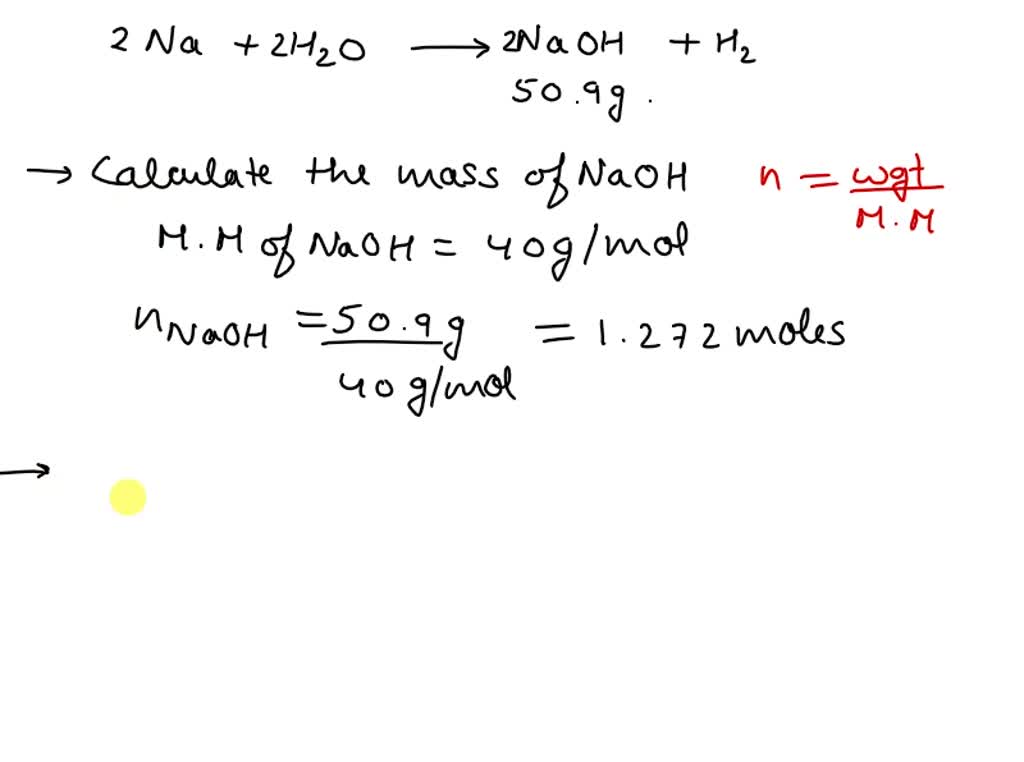 2 Na + 2H₂O ⟶ 2NaOH + H₂
50.9g.
→ Calculate the mass of NaOH n = wgt / M.M
M.M of NaOH = 40g/mol
nNaOH = 50.9g / 40g/mol = 1.272 moles
→